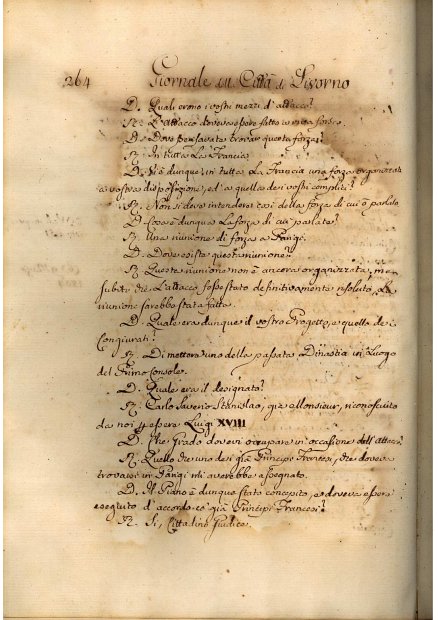 264 Giornale della Città di Livorno
D. Quali erano i vostri mezzi d'attacco?
R. L'attacco doveva essere fatto a viva forza.
D. Dove pensavate trovar questa forza?
R. In tutta La Francia.
D. Vi è dunque in tutta La Francia una forza organizzata
a vostra disposizione, ed a quella dei vostri complici?
R. Non si deve intendere così della forza di cui ò parlato
D. Cosa è dunque La forza di cui parlate?
R. Una riunione di forza a Parigi.
D. Dove esiste questa riunione?
R. Questa riunione non è ancora organizzata, ma
subito che L'attacco fosse stato definitivamente risoluto, La
riunione sarebbe stata fatta.
D. Quale era dunque il vostro Progetto, e quello dei
Congiurati?
R. Di mettere uno della passata Dinastia in Luogo
del Primo Console.
D. Quale era il designato?
R. Carlo Saverio Stanislao, già Monsieur, riconosciuto
da noi per essere Luigi XVIII
D. Che Grado dovevi occupare in occasione dell'attacco?
R. Quello che uno dei già Principi Francesi, che doveva
trovarsi in Parigi mi averebbe assegnato.
D. Il Piano è dunque stato concepito, e doveva essere
eseguito d'accordo co' già Principi Francesi?
R. Si, Cittadino Giudice.